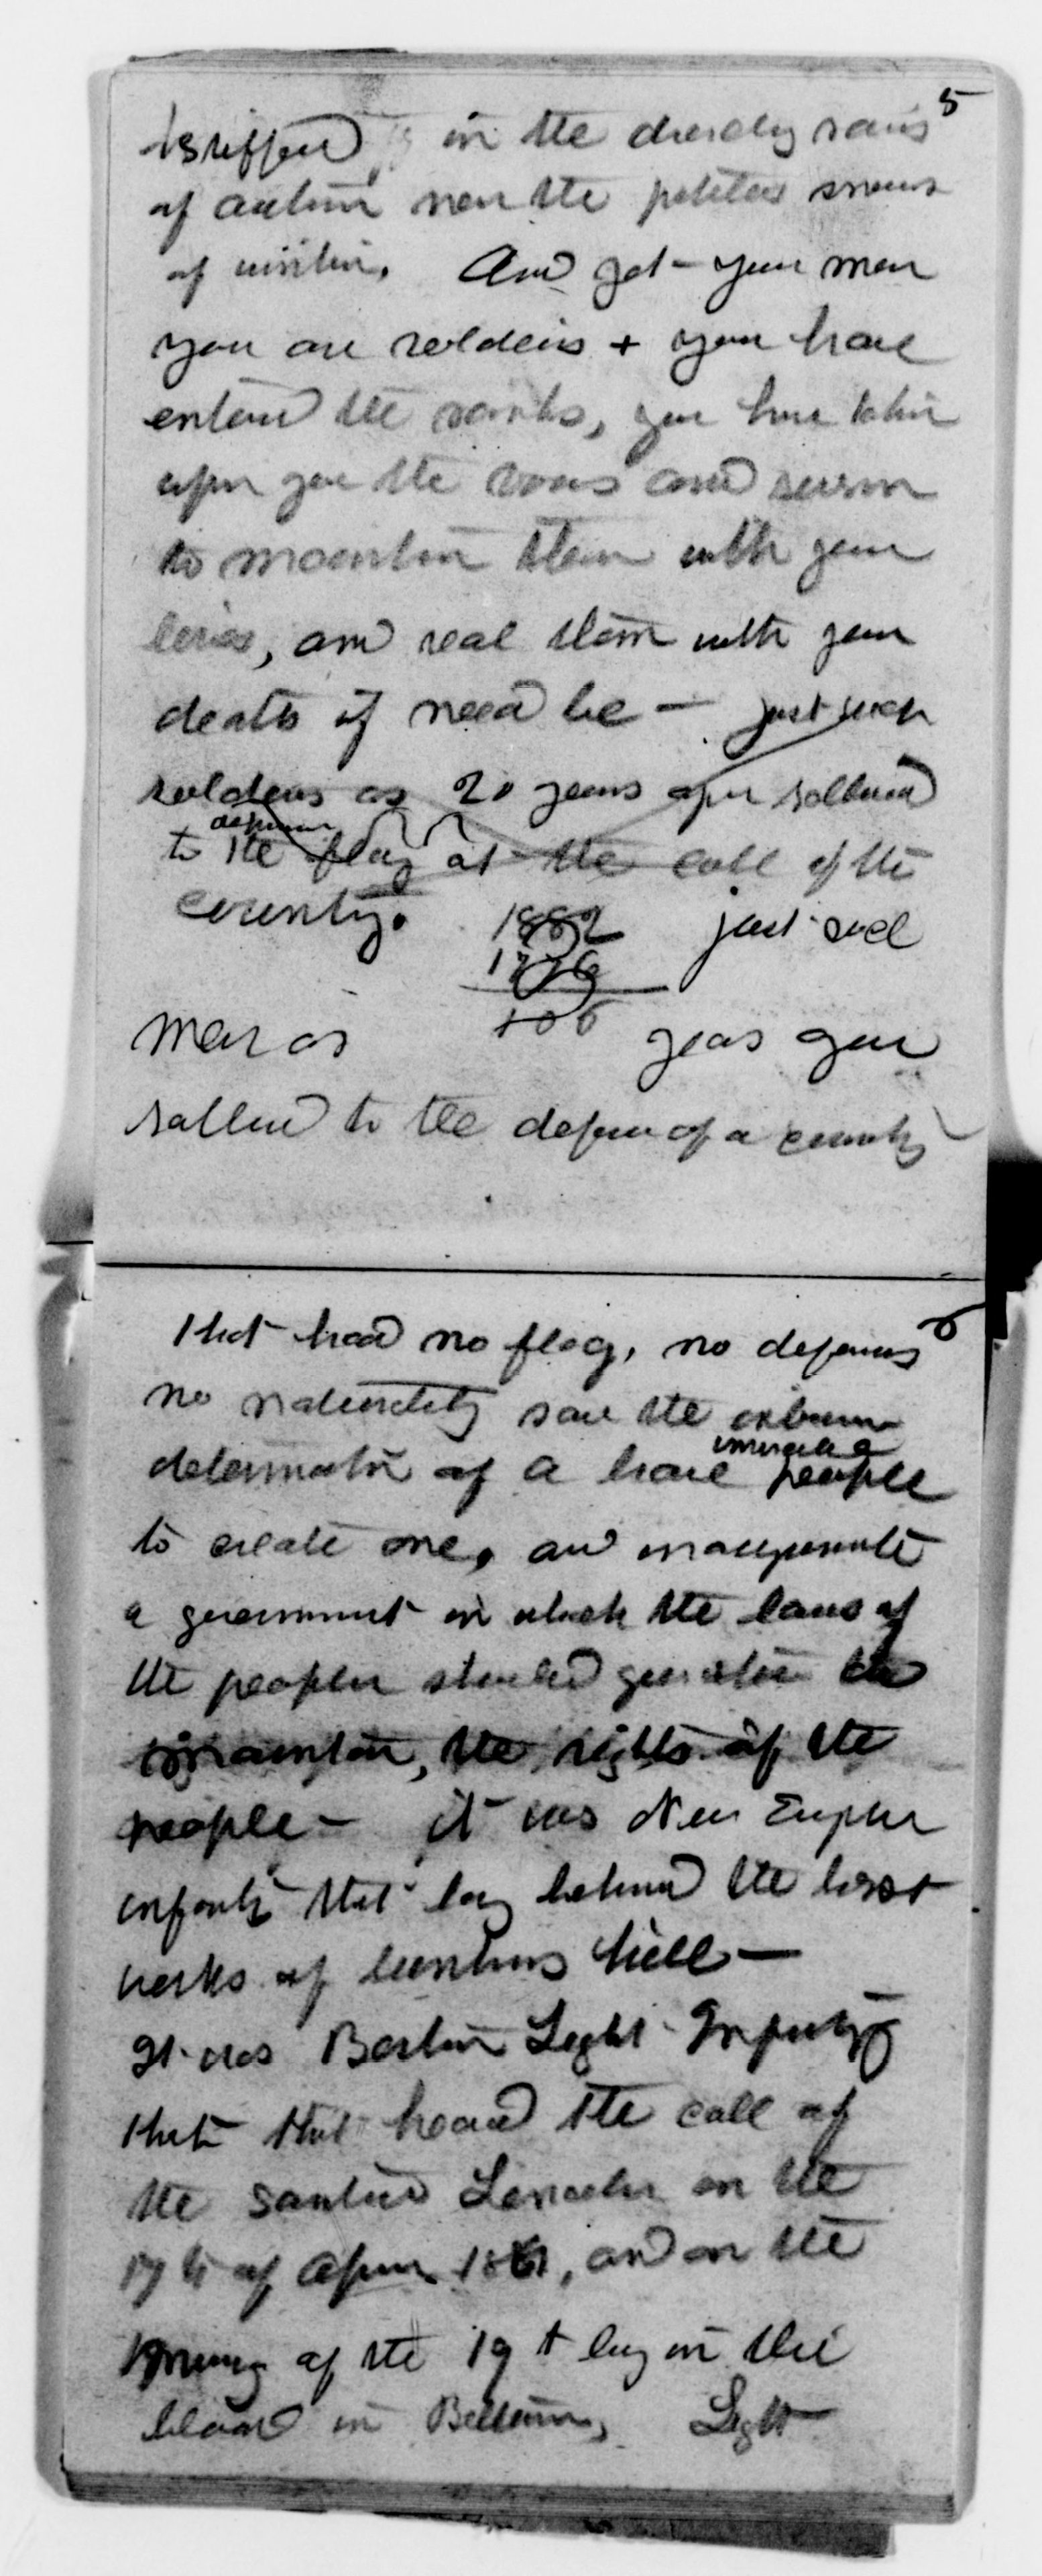 5
stiffened in the dreary rains
of autumn nor the pitiless snows
of winter. And yet - your men
you are soldiers + you have
entered the ranks, you have taken
upon you the vows and sworn
to maintain them with your
lives, and seal them with your
death if need be - just such
soldiers as 20 years agon rallied
defense
to the flag at the call of the
country.
1882 just such
1776
men as 106 years agon
rallied to the defense of a country
6
that had no flag, no defences
no nationality save the
immovable
determination of a brave people
to create one, and inaugurate
a government in which the laws of
the people should
maintain, the rights of the
people - it was New England
infantry that lay behind the breast
works of bunkers hill -
It was Boston Light Infantry
that that heard the call of
the sainted Lincoln on the
17th of April 1861, and on the
morning of the 19t lay in their
blood in Baltimore, Light